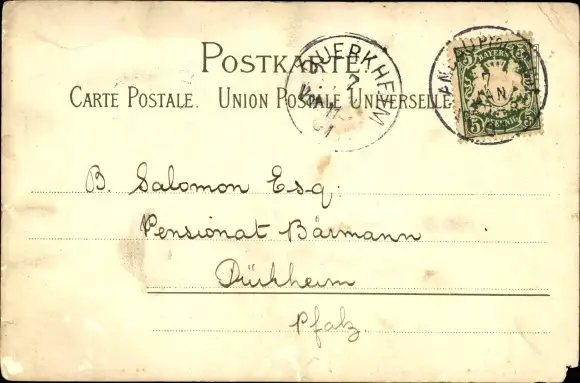 POSTKARTE.
CARTE POSTALE. UNION POSTALE UNIVERSELLE
DUERKHEIM
7
BAYERN
5 5
PFENNIG
B. Salomon Esq.
Pensionat Bärmann
Dürkheim
Pfalz.